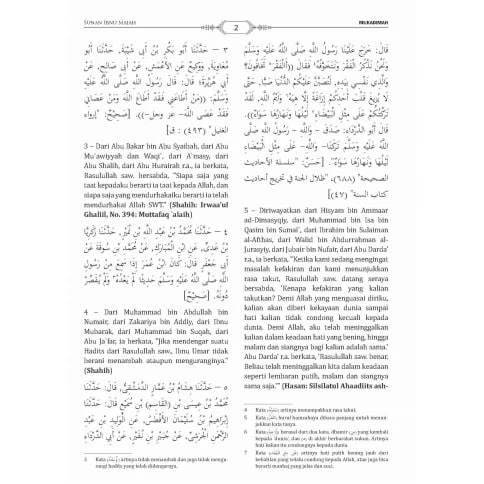 SUNAN IBNU MAJAH
2
MUKADIMAH
٣ – حَدَّثَنَا أَبُو بَكْرِ بْنُ أَبِي شَيْبَةَ، حَدَّثَنَا أَبُو
مُعَاوِيَةَ، وَوَكِيعٌ، عَنِ الأَعْمَشِ، عَنْ أَبِي صَالِحٍ، عَنْ
أَبِي هُرَيْرَةَ؛ قَالَ: قَالَ رَسُولُ اللَّهِ صَلَّى اللَّهُ عَلَيْهِ
وَسَلَّمَ: ((مَنْ أَطَاعَنِي فَقَدْ أَطَاعَ اللَّهَ وَمَنْ عَصَانِي
فَقَدْ عَصَى اللَّهَ – عز وجل–)). [صَحِيْحٌ: "إرواء
(٤٩٣) : ق]
3 – Dari Abu Bakar bin Abu Syaibah, dari Abu
Mu'awiyyah dan Waqi', dari A'masy, dari
Abu Shalih, dari Abu Hurairah r.a., ia berkata,
Rasulullah saw. bersabda, "Siapa saja yang
taat kepadaku berarti ia taat kepada Allah, dan
siapa saja yang mendurhakaiku berarti ia telah
mendurhakai Allah SWT." (Shahih: Irwaa'ul
Ghaliil, No. 394: Muttafaq 'alaih)
٤ – حَدَّثَنَا مُحَمَّدُ بْنُ عَبْدِ اللَّهِ بْنِ نُمَيْرٍ، حَدَّثَنَا زَكَرِيَّا
بْنُ عَدِيٍّ، عَنِ ابْنِ الْمُبَارَكِ، عَنْ مُحَمَّدِ بْنِ سُوقَةَ عَنْ
أَبِي جَعْفَرٍ قَالَ: كَانَ ابْنُ عُمَرَ إِذَا سَمِعَ مِنْ رَسُولِ
اللَّهِ صَلَّى اللَّهُ عَلَيْهِ وَسَلَّمَ حَدِيثًا لَمْ يَعْدُهُ وَلَمْ يُقَصِّرْ
دُونَهُ. [صَحِيْحٌ]
4 – Dari Muhammad bin Abdullah bin
Numair, dari Zakariya bin Addiy, dari Ibnu
Mubarak, dari Muhammad bin Suqah, dari
Abu Ja'far, ia berkata, "Jika mendengar suatu
Hadits dari Rasulullah saw., Ibnu Umar tidak
berani menambah ataupun menguranginya."
(Shahih)
٥ – حَدَّثَنَا هِشَامُ بْنُ عَمَّارٍ الدِّمَشْقِيُّ، قَالَ: حَدَّثَنَا
مُحَمَّدُ بْنُ عِيسَى بْنِ (القَاسِمِ) بْنِ سُمَيْعٍ قَالَ: حَدَّثَنَا
إِبْرَاهِيمُ بْنُ سُلَيْمَانَ الأَفْطَسُ، عَنِ الْوَلِيدِ بْنِ عَبْدِ
الرَّحْمَنِ الْجُرَشِيِّ، عَنْ جُبَيْرِ بْنِ نُفَيْرٍ، عَنْ أَبِي الدَّرْدَاءِ
3 Kata artinya tidak menambah dan juga tidak mengu-
rangi hadits yang telah didengarnya.
قَالَ: خَرَجَ عَلَيْنَا رَسُولُ اللَّهِ صَلَّى اللَّهُ عَلَيْهِ وَسَلَّمَ
وَنَحْنُ نَذْكُرُ الْفَقْرَ وَنَتَخَوَّفُهُ؛ فَقَالَ: ((آلْفَقْرَ تَخَافُونَ؟
وَالَّذِي نَفْسِي بِيَدِهِ، لَتُصَبَّنَّ عَلَيْكُمُ الدُّنْيَا صَبًّا، حَتَّى
لاَ يُزِيغَ قَلْبَ أَحَدِكُمْ إِزَاغَةً إِلاَّ هِيَهْ وَايْمُ اللَّهِ، لَقَدْ
تَرَكْتُكُمْ عَلَى مِثْلِ الْبَيْضَاءِ، لَيْلُهَا وَنَهَارُهَا سَوَاءٌ)).
قَالَ أَبُو الدَّرْدَاءِ: صَدَقَ – وَاللَّهِ – رَسُولُ اللَّهِ صَلَّى
اللَّهُ عَلَيْهِ وَسَلَّمَ تَرَكَنَا– وَاللَّهِ – عَلَى مِثْلِ الْبَيْضَاءِ،
لَيْلُهَا وَنَهَارُهَا سَوَاءٌ. [حَسَنٌ: "سلسلة الأحاديث
الصحيحة" (٦٨٨)، "ظلال الجنة في تخريج أحاديث
كتاب السنة" (٤٧)]
5 – Diriwayatkan dari Hisyam bin Ammaar
ad-Dimasyqiy, dari Muhammad bin Isa bin
Qasim bin Sumai', dari Ibrahim bin Sulaiman
al-Afthas, dari Walid bin Abdurrahman al-
Jurasyiy, dari Jubair bin Nufair, dari Abu Darda'
r.a., ia berkata, "Ketika kami sedang mengingat
masalah kefakiran dan kami menunjukkan
rasa takut, Rasulullah saw. datang seraya
bersabda, 'Kenapa kefakiran yang kalian
takutkan? Demi Allah yang menguasai diriku,
kalian akan diberi kekayaan dunia sampai
hati kalian tidak condong kecuali kepada
dunia. Demi Allah, aku telah meninggalkan
kalian dalam keadaan hati yang bening, hingga
malam dan siangnya bagi kalian adalah sama.'
Abu Darda' r.a. berkata, 'Rasulullah saw. benar.
Beliau telah meninggalkan kita dalam keadaan
seperti lembaran putih, malam dan siangnya
sama saja.'" (Hasan: Silsilatul Ahaadiits ash-
4 Kata artinya menampakkan rasa takut.
5 Kata huruf hamzahnya dibaca panjang untuk menun-
jukkan kata tanya.
6 Kata berasal dari dua kata, dhamir yang kembali
kepada 'dunia', dan di akhir berharakat sukun. Artinya
hati kalian itu condongnya kepada dunia.
7 Kata artinya hati putih bening jauh dari
kebatilan yang selalu condong kepada Allah, atau juga bisa
berarti manhaj yang jelas dan suci.